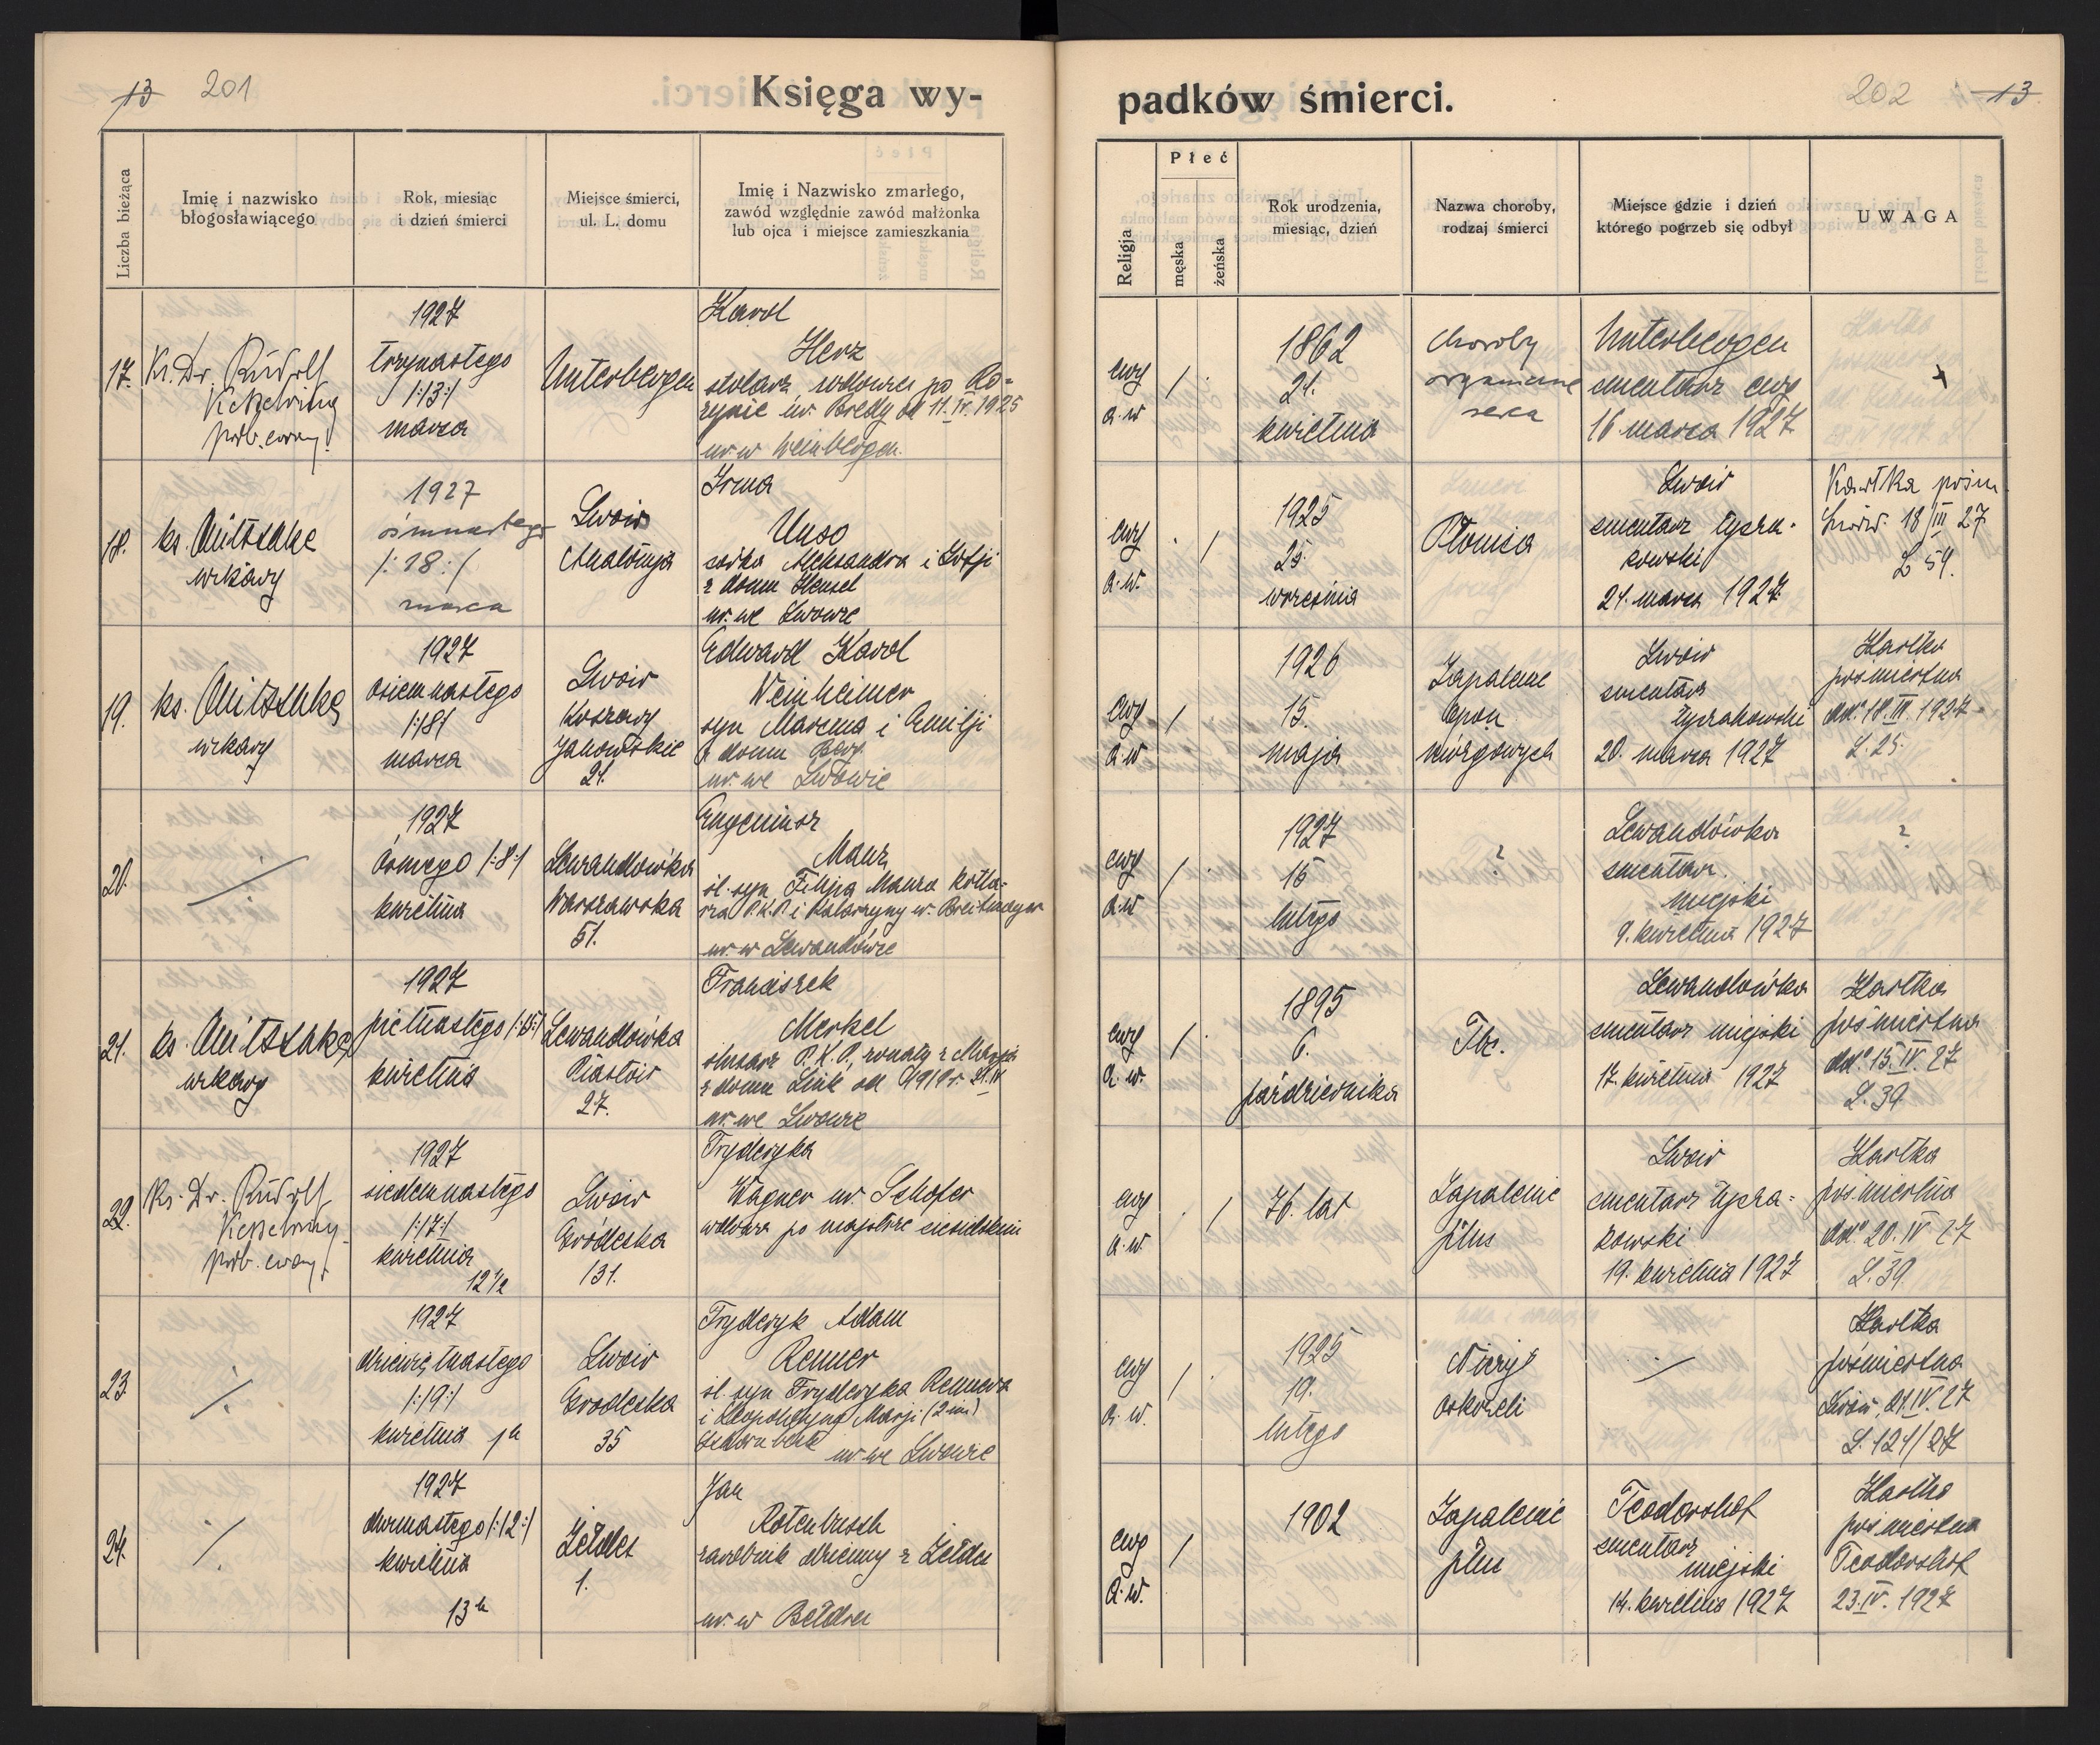 13 201
Księga wy-
padków śmierci.
202 13
Liczba bieżąca
Imię i nazwisko
błogosławiącego
Rok, miesiąc
i dzień śmierci
Miejsce śmierci,
ul. L. domu
Imię i Nazwisko zmarłego,
zawód względnie zawód małżonka
lub ojca i miejsce zamieszkania
Religja
Płeć
męska
żeńska
Rok urodzenia,
miesiąc, dzień
Nazwa choroby,
rodzaj śmierci
Miejsce gdzie i dzień
którego pogrzeb się odbył
UWAGA
17.
Ks. Dr. Rudolf
Kesselring
prob. ewang.
1927
trzynastego
/:13:/
marca
Unterbergen
Karol
Herz
stolarz, wdowiec po Ro-
zynie ur. Bredy od 11.IV.1925
ur. w Weinbergen.
ewg
a.w
/ .
1862
21.
kwietnia
choroby
organiczne
serca
Unterbergen
cmentarz ewg
16 marca 1927
18.
ks. Mitschke
wikary
1927
ósmnastego
/:18:/
marca
Lwów
Anatomja
Irma
Unso
córka Aleksandra i Zofji
z domu Hensel
ur. we Lwowie
ewg
a.w.
. /
1925
25
września
Płonica
Lwów
cmentarz Łycza-
kowski
21. marca 1927
Kartka pośm.
Lwów. 18/III 27
L 54.
19.
ks. Mitschke
wikary
1927
osiemnastego
/:18/
marca
Lwów
Koszary
Janowskie
21.
Edward Karol
Weinheimer
syn Marcina i Emilji
z domu
ur. we Lwowie
ewg
a.w
/
1926
15.
maja
Zapalenie
opon
mózgowych
Lwów
cmentarz
Łyczakowski
20. marca 1927
Kartka
pośmiertna
dd. 18.III.1927
L. 25.
20.
/
1927
ósmego /:8:/
kwietnia
Lewandówka
Warszawska
51.
Eugeniusz
Maur
śl. syn Filipa Maura kotla-
rza P.K.P. i Katarzyny ur. Breitmayer
ur. w Lewandówce
ewg
a.w
/ .
1927
16
lutego
?
Lewandówka
cmentarz
miejski
9. kwietnia 1927
?
21.
ks. Mitschke
wikary
1927
piętnastego /:15:/
kwietnia
Lewandówka
Piastów
27.
Franciszek
Merkel
ślusarz P.K.P., żonaty z Marją
z domu Link od 1919 r.
ur. we Lwowie
ewg
a.w.
/ .
1895
6.
października
Tbc.
Lewandówka
cmentarz miejski
17. kwietnia 1927
Kartka
pośmiertna
dd. 15.IV.27
L. 39
22.
Ks. Dr. Rudolf
Kesselring
prob. ewang.
1927
siedemnastego
/:17:/
kwietnia
12½
Lwów
Gródecka
131.
Fryderyka
Wagner ur. Schofer
wdowa po majstrze ciesielskim
ewg
a.w.
. /
76. lat
Zapalenie
płuc
Lwów
cmentarz Łycza-
kowski
19. kwietnia 1927
Kartka
pośmiertna
dd. 20.IV 27
L. 39
23.
/
1927
dziewiętnastego
/:19:/
kwietnia
Lwów
Grodecka
35
Fryderyk Adam
Renner
śl. syn Fryderyka Rennera
i Leopoldyny Marji (2 im)
ur. we Lwowie
ewg
a.w.
/ .
1925
19.
lutego
Nieżyt
oskrzeli
/
Kartka
pośmiertna
Lwów, 21.IV.27
L. 121/27
24.
/
1927
dwunastego /:12:/
kwietnia
13 h
Żełdec
1.
Jan
Rotenbusch
zarobnik dzienny z Żełdec
ur. w Bełdzu
ewg
a.w.
/
1902
Zapalenie
płuc
Teodorshof
cmentarz
miejski
14. kwietnia 1927
Kartka
pośmiertna
Teodorshof
23.IV.1927